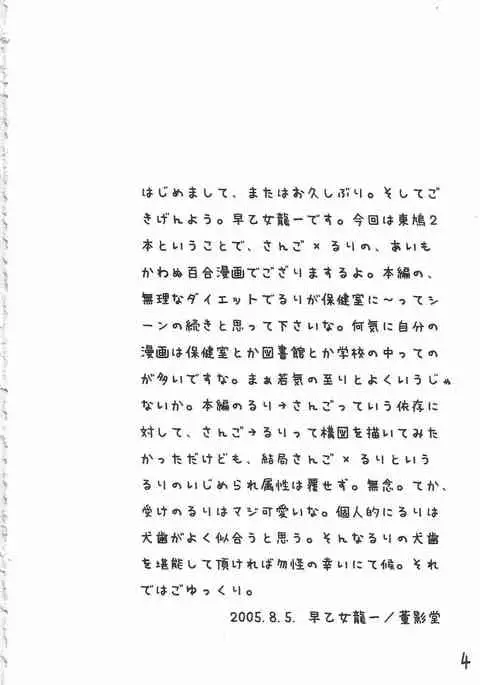 はじめまして、またはお久しぶり。そしてご
きげんよう。早乙女龍一です。今回は東鳩2
本ということで、さんご×るりの、あいも
かわぬ百合漫画でござりまするよ。本編の、
無理なダイエットでるりが保健室に〜ってシ
ーンの続きと思って下さいな。何気に自分の
漫画は保健室とか図書館とか学校の中っての
が多いですな。まぁ若気の至りとよくいうじゃ
ないか。本編のるり→さんごっていう依存に
対して、さんご→るりって構図を描いてみた
かっただけども、結局さんご×るりという
るりのいじめられ属性は覆せず。無念。てか、
受けのるりはマジ可愛いな。個人的にるりは
犬歯がよく似合うと思う。そんなるりの犬歯
を堪能して頂ければ勿怪の幸いにて候。それ
ではごゆっくり。
2005.8.5. 早乙女龍一/菫影堂
4